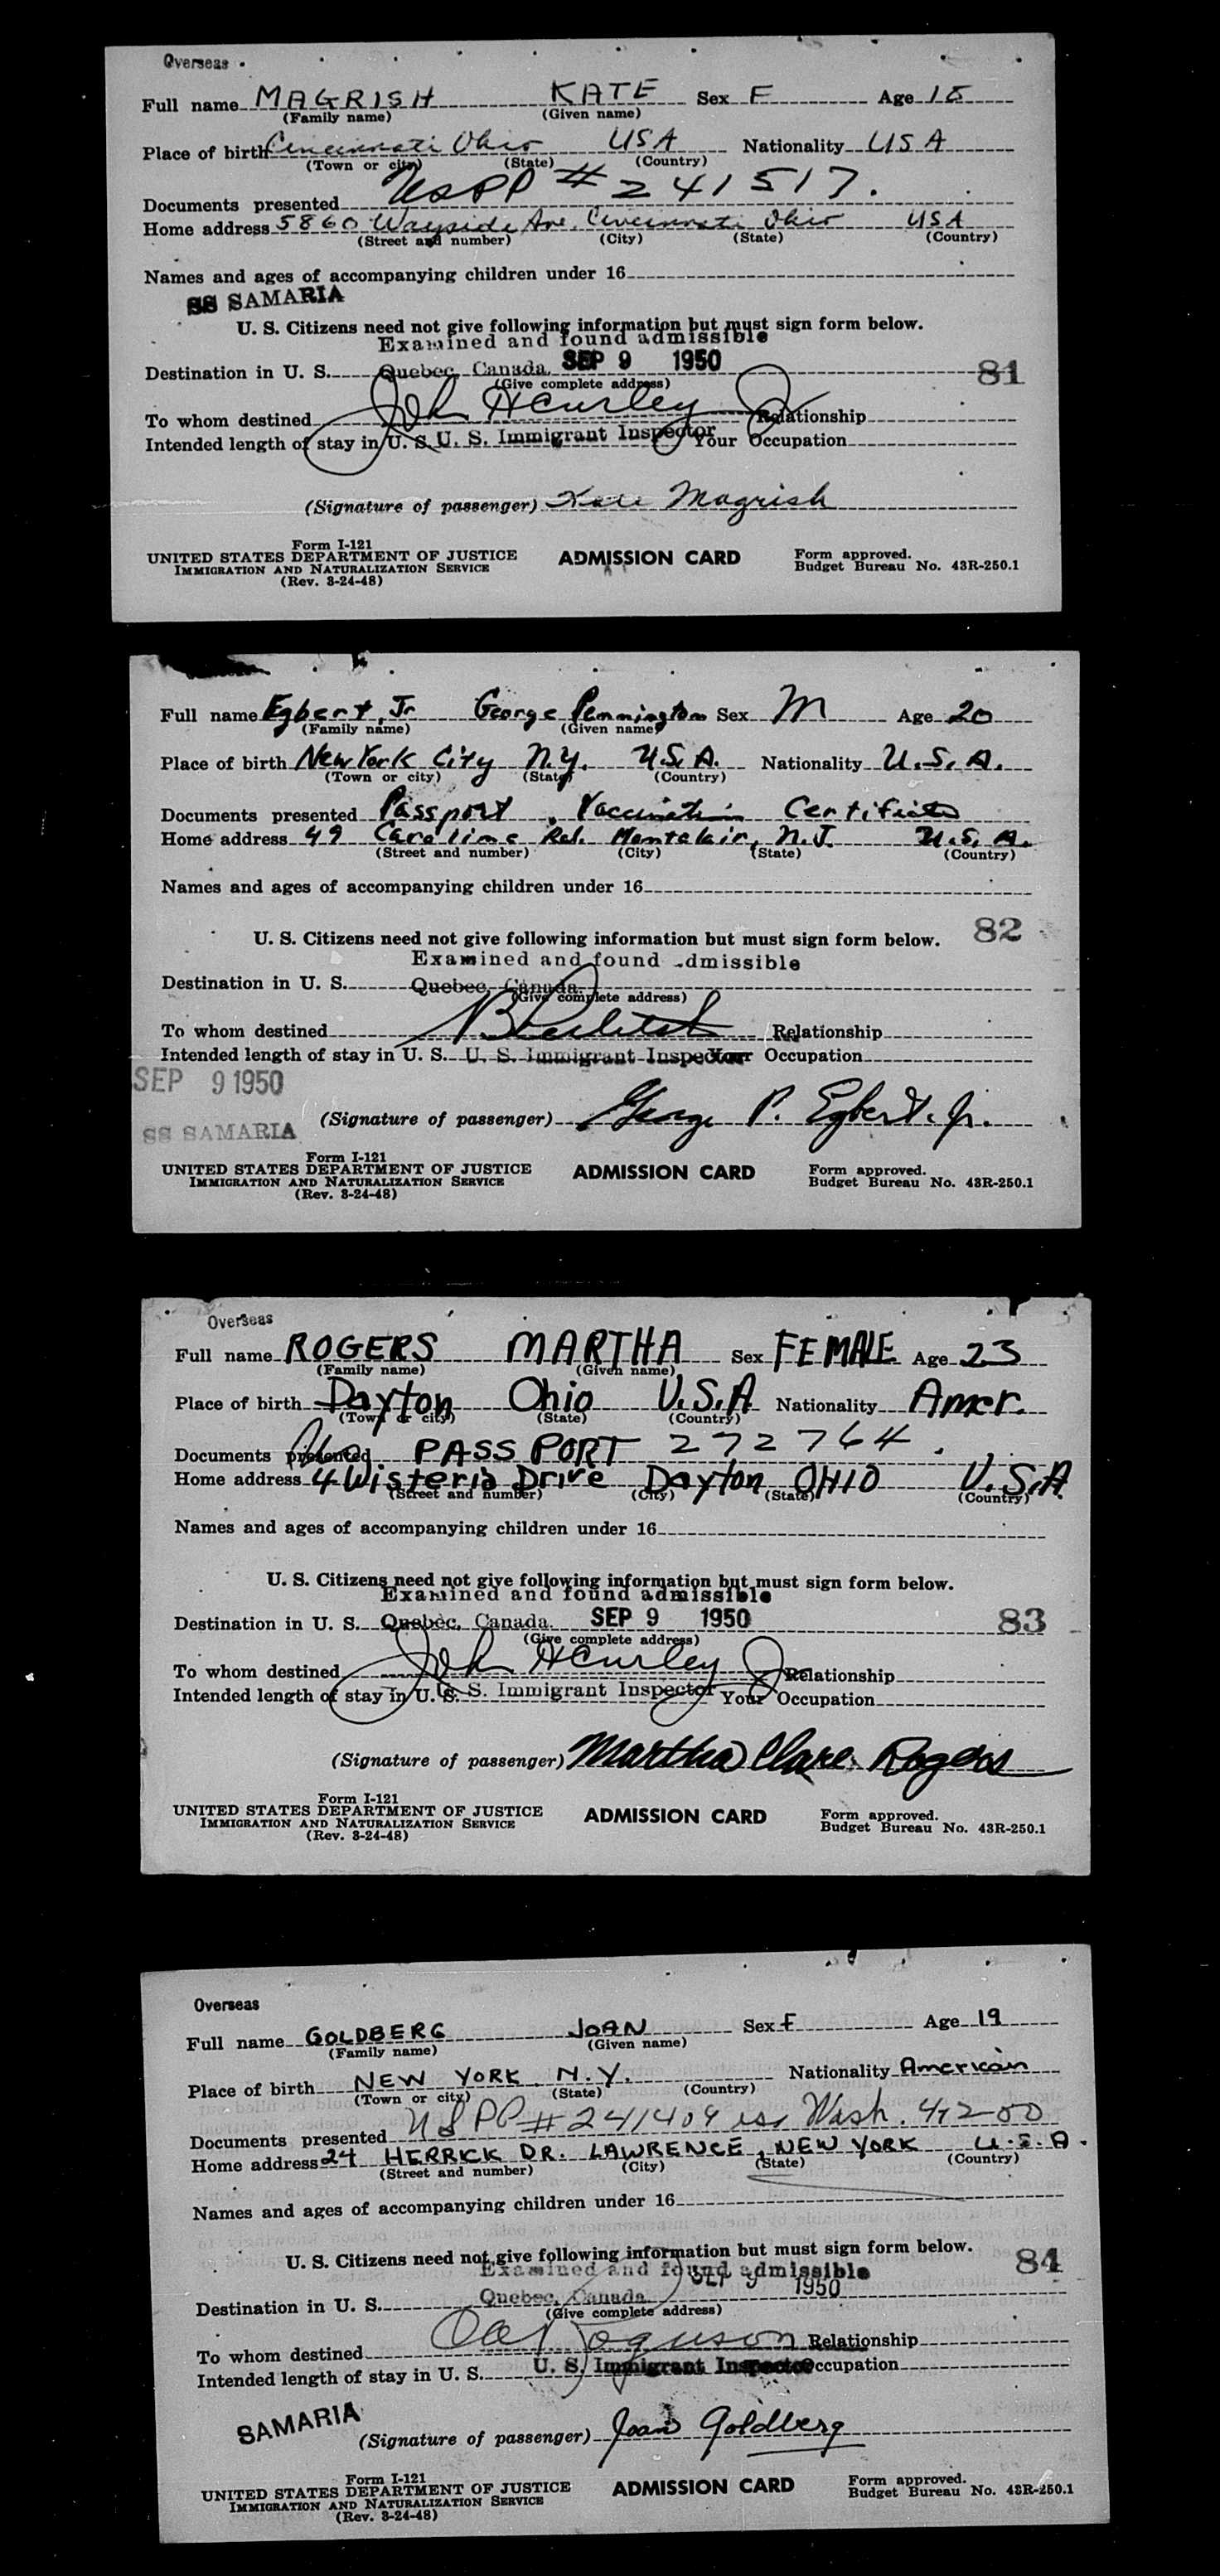 Overseas
Full name MAGRISH KATE Sex F Age 18
(Family name) (Given name)
Place of birth Cincinnati Ohio USA Nationality USA
(Town or city) (State) (Country)
Documents presented USPP # 241517.
Home address 5860 Wayside Ave. Cincinnati Ohio USA
(Street and number) (City) (State) (Country)
Names and ages of accompanying children under 16
SS SAMARIA
U. S. Citizens need not give following information but must sign form below.
Examined and found admissible
Destination in U. S. Quebec, Canada. SEP 9 1950 81
(Give complete address)
To whom destined Relationship
Intended length of stay in U. S. U. S. Immigrant Inspector Your Occupation
(Signature of passenger) Kate Magrish
Form I-121
UNITED STATES DEPARTMENT OF JUSTICE ADMISSION CARD Form approved.
IMMIGRATION AND NATURALIZATION SERVICE Budget Bureau No. 43R-250.1
(Rev. 3-24-48)
Full name Egbert, Jr George Pennington Sex M Age 20
(Family name) (Given name)
Place of birth New York City N.Y. U.S.A. Nationality U.S.A.
(Town or city) (State) (Country)
Documents presented Passport, Vaccination Certificate
Home address 49 Carolina Rd. Montclair, N.J. U.S.A.
(Street and number) (City) (State) (Country)
Names and ages of accompanying children under 16
82
U. S. Citizens need not give following information but must sign form below.
Examined and found admissible
Destination in U. S. Quebec, Canada.
(Give complete address)
To whom destined Relationship
Intended length of stay in U. S. U. S. Immigrant Inspector Your Occupation
SEP 9 1950
(Signature of passenger) George P. Egbert. Jr.
SS SAMARIA
Form I-121
UNITED STATES DEPARTMENT OF JUSTICE ADMISSION CARD Form approved.
IMMIGRATION AND NATURALIZATION SERVICE Budget Bureau No. 43R-250.1
(Rev. 3-24-48)
Overseas
Full name ROGERS MARTHA Sex FEMALE Age 23
(Family name) (Given name)
Place of birth Dayton Ohio U.S.A Nationality Amer.
(Town or city) (State) (Country)
Documents presented PASSPORT 272764.
Home address 4 Wisteria Drive Dayton OHIO U.S.A.
(Street and number) (City) (State) (Country)
Names and ages of accompanying children under 16
U. S. Citizens need not give following information but must sign form below.
Examined and found admissible
Destination in U. S. Quebec, Canada. SEP 9 1950 83
(Give complete address)
To whom destined Relationship
Intended length of stay in U. S. U. S. Immigrant Inspector Your Occupation
(Signature of passenger) Martha Clare Rogers
Form I-121
UNITED STATES DEPARTMENT OF JUSTICE ADMISSION CARD Form approved.
IMMIGRATION AND NATURALIZATION SERVICE Budget Bureau No. 43R-250.1
(Rev. 3-24-48)
Overseas
Full name GOLDBERG JOAN Sex F Age 19
(Family name) (Given name)
Place of birth NEW YORK N.Y. Nationality American
(Town or city) (State) (Country)
Documents presented USPP # 241409 iss Wash. 4-12-50
Home address 24 HERRICK DR. LAWRENCE, NEW YORK U.S.A.
(Street and number) (City) (State) (Country)
Names and ages of accompanying children under 16
U. S. Citizens need not give following information but must sign form below.
84
Examined and found admissible
SEP 9 1950
Destination in U. S. Quebec, Canada
(Give complete address)
To whom destined Relationship
Intended length of stay in U. S. U. S. Immigrant Inspector Occupation
SAMARIA
(Signature of passenger) Joan Goldberg
Form I-121
UNITED STATES DEPARTMENT OF JUSTICE ADMISSION CARD Form approved.
IMMIGRATION AND NATURALIZATION SERVICE Budget Bureau No. 43R-250.1
(Rev. 3-24-48)